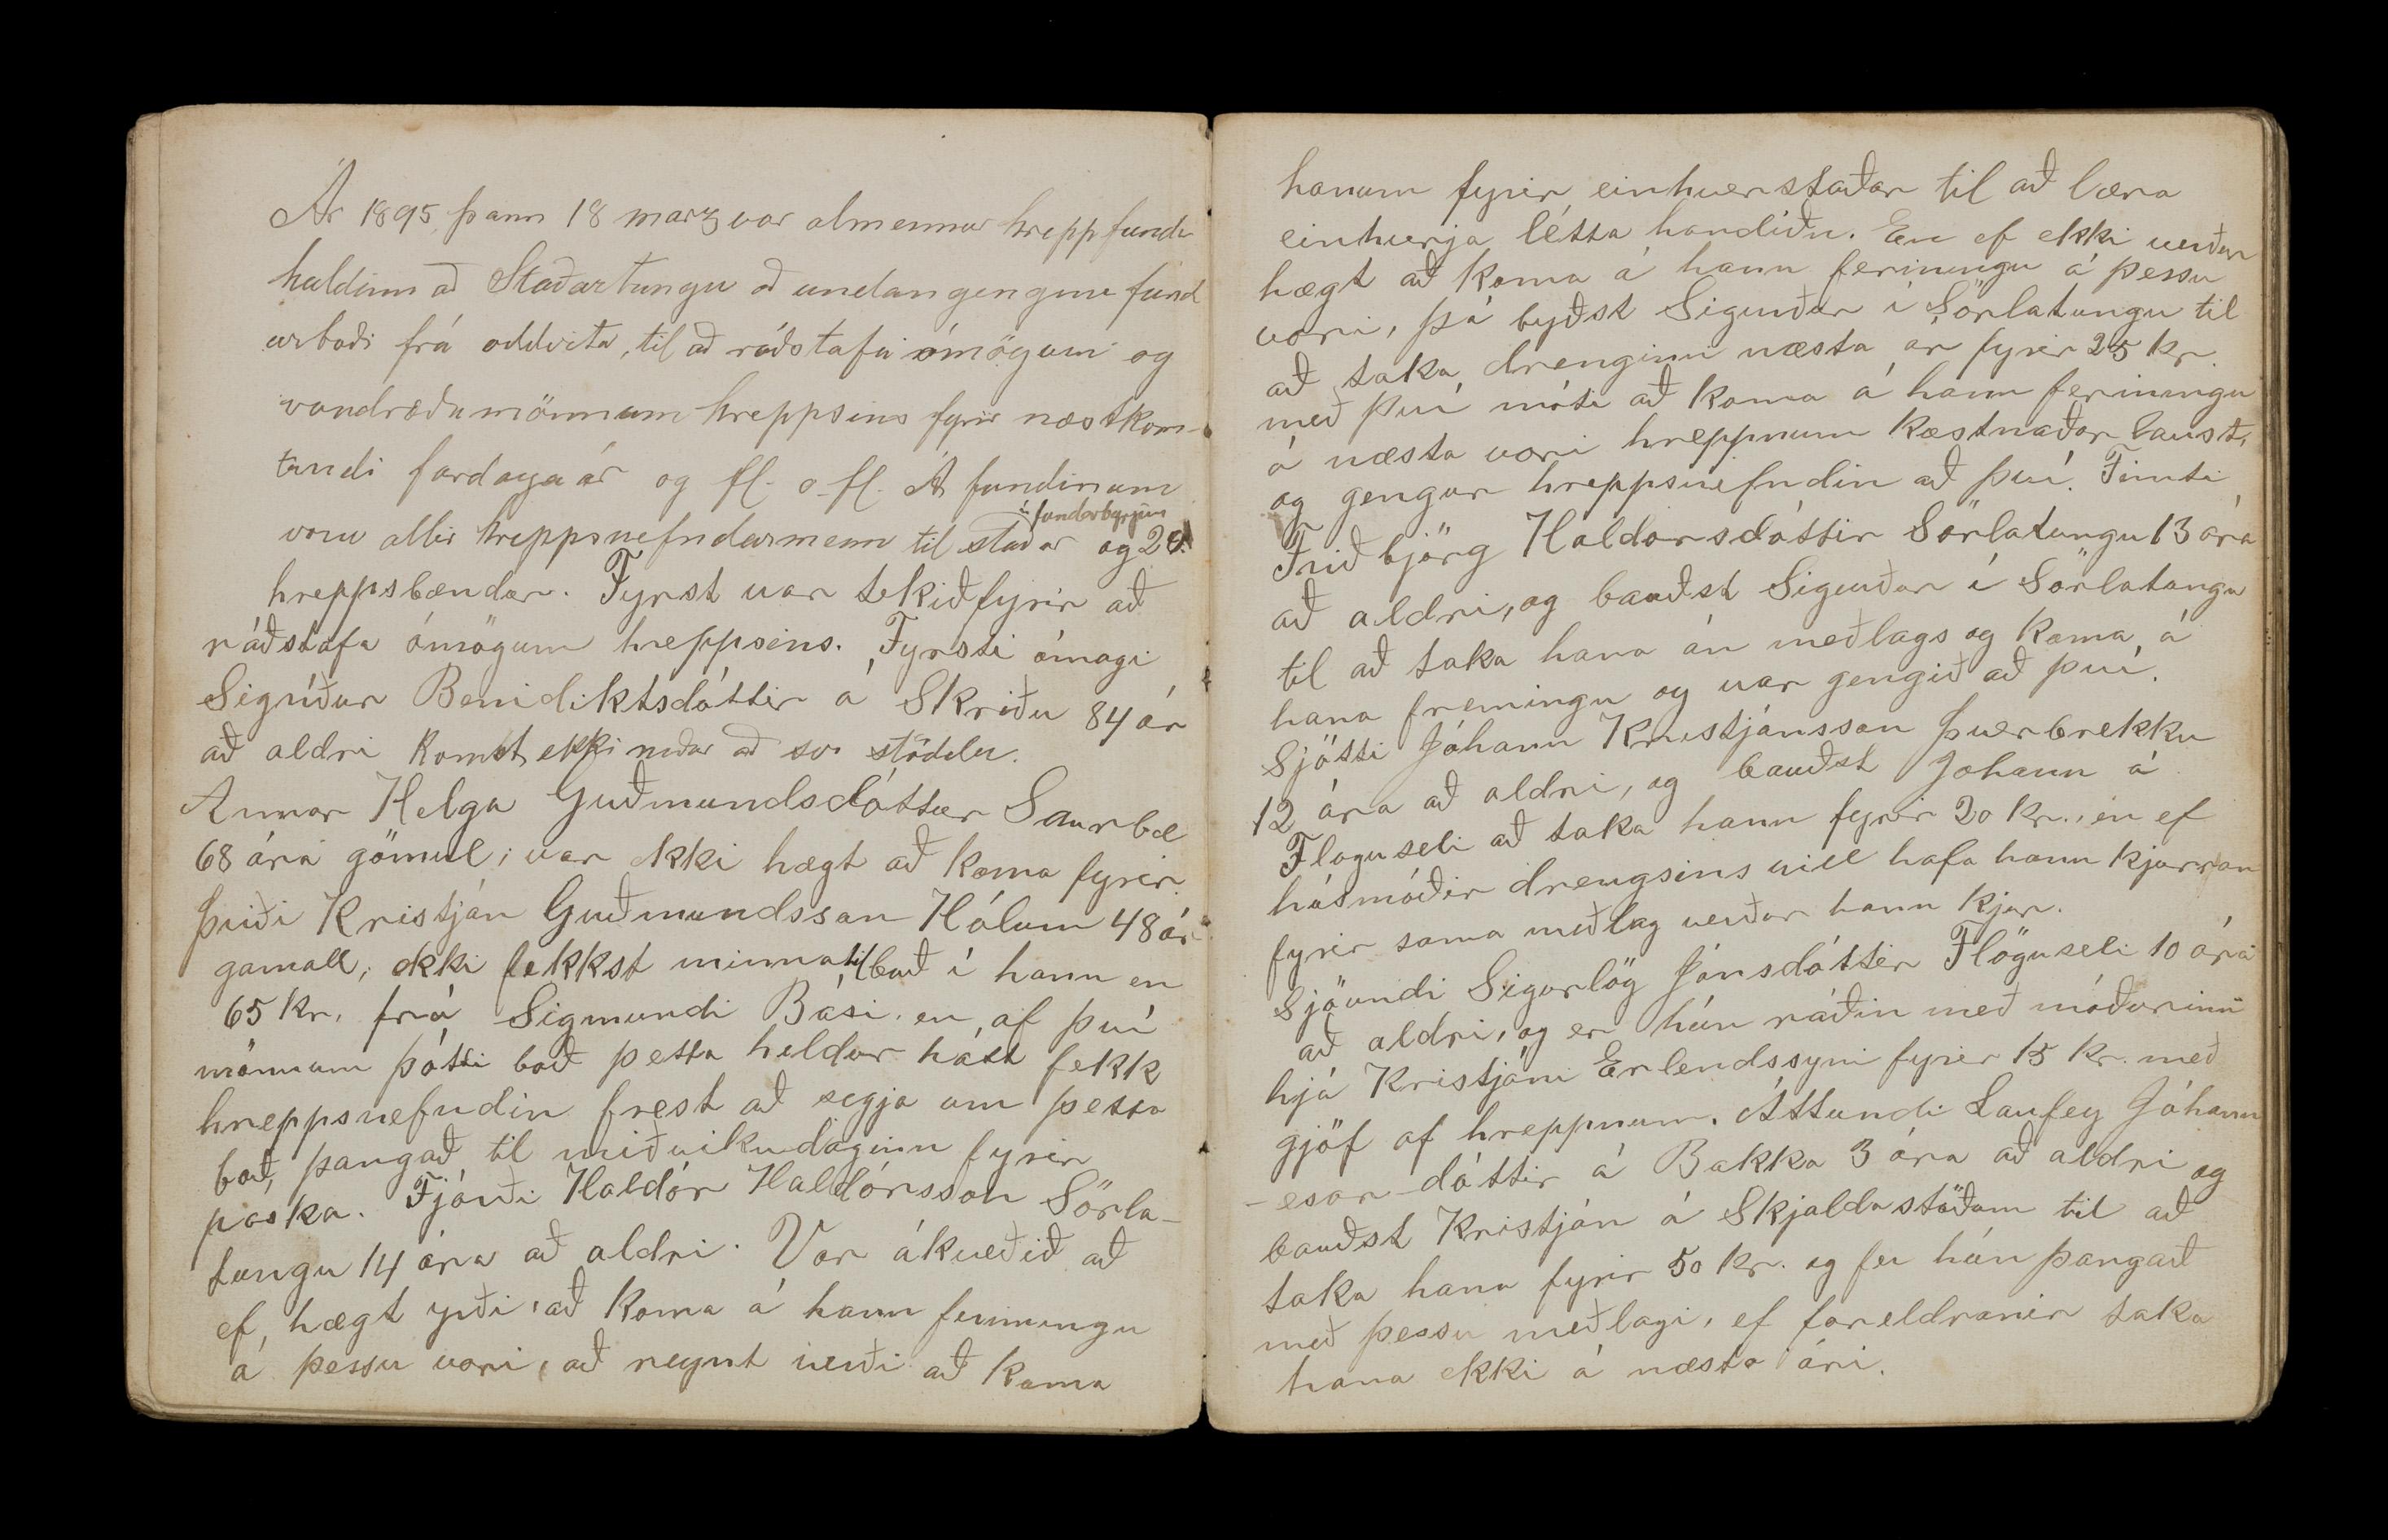 Ár 1895, þann 18 marz var almennur hreppfundr
haldinn að Staðartungu að undangengnu fund
arboði frá oddvita, til að ráðstafa ómögum og
vandræðamönnum hreppsins fyrir næstkom-
andi fardagaár og fl. o. fl. Á fundinum
í fundarbyrjun
voru allir hreppsnefndarmenn til staðar og 20.
hreppsbændur. Fyrst var tekið fyrir að
ráðstafa ómögum hreppsins. Fyrsti ómagi
Sigríður Benidiktsdóttir á Skriðu 84 ár
að aldri komst ekki niður að svo stöddu.
Annar Helga Guðmundsdóttir Saurbæ
68 ára gömul; var ekki hægt að koma fyrir.
Þriði Kristján Guðmundsson Hólum 48 ár
gamall; ekki fekkst minna tilboð í hann en
65 kr. frá Sigmundi Bási. en, af því
mönnum þótti boð þetta heldur hátt fekk
hreppsnefndin frest að segja um þetta
boð, þangað til miðvikudaginn fyrir
paska. Fjórði Haldór Haldórsson Sörla-
tungu 14 ára að aldri. Var ákveðið að
ef, hægt yrði, að koma á hann fermingu
á þessu vori, að reynt verði að koma
honum fyrir einhverstaðar til að læra
einhverja létta handiðn. En ef ekki verður
hægt að koma á hann feriningu á þessu
vori, þá byðst Sigurður í Sörlatungu til
að taka drenginn næsta ár fyrir 25 kr.
með því móti að koma á hann feriningu
á næsta vori hreppnum kostnaðar laust,
og gengur hreppsnefndin að því. Fimti
Friðbjörg Haldorsdóttir Sörlatungu 13 ára
að aldri, og bauðst Sigurður í Sörlatungu
til að taka hana án meðlags og koma á
hana fremingu og var gengið að því.
Sjötti Jóhann Kristjánsson Þverbrekku
12 ára að aldri, og bauðst Johann á
Floguseli að taka hann fyrir 20 kr., en ef
húsmóðir drengsins vill hafa hann kjurran
fyrir sama meðlag verður hann kjur.
Sjöundi Sigurlög Jónsdóttir Flöguseli 10 ára
að aldri, og er hún ráðin með móðurinni
hjá Kristjáni Erlendssyni fyrir 15 kr. með
gjöf af hreppnum. Áttundi Laufey Jóhann
-esar-dóttir á Bakka 3 ára að aldri og
bauðst Kristján á Skjaldastöðum til að
taka hana fyrir 50 kr. og fer hún þangað
með þessu meðlagi, ef foreldranir taka
hana ekki á næsta ári.